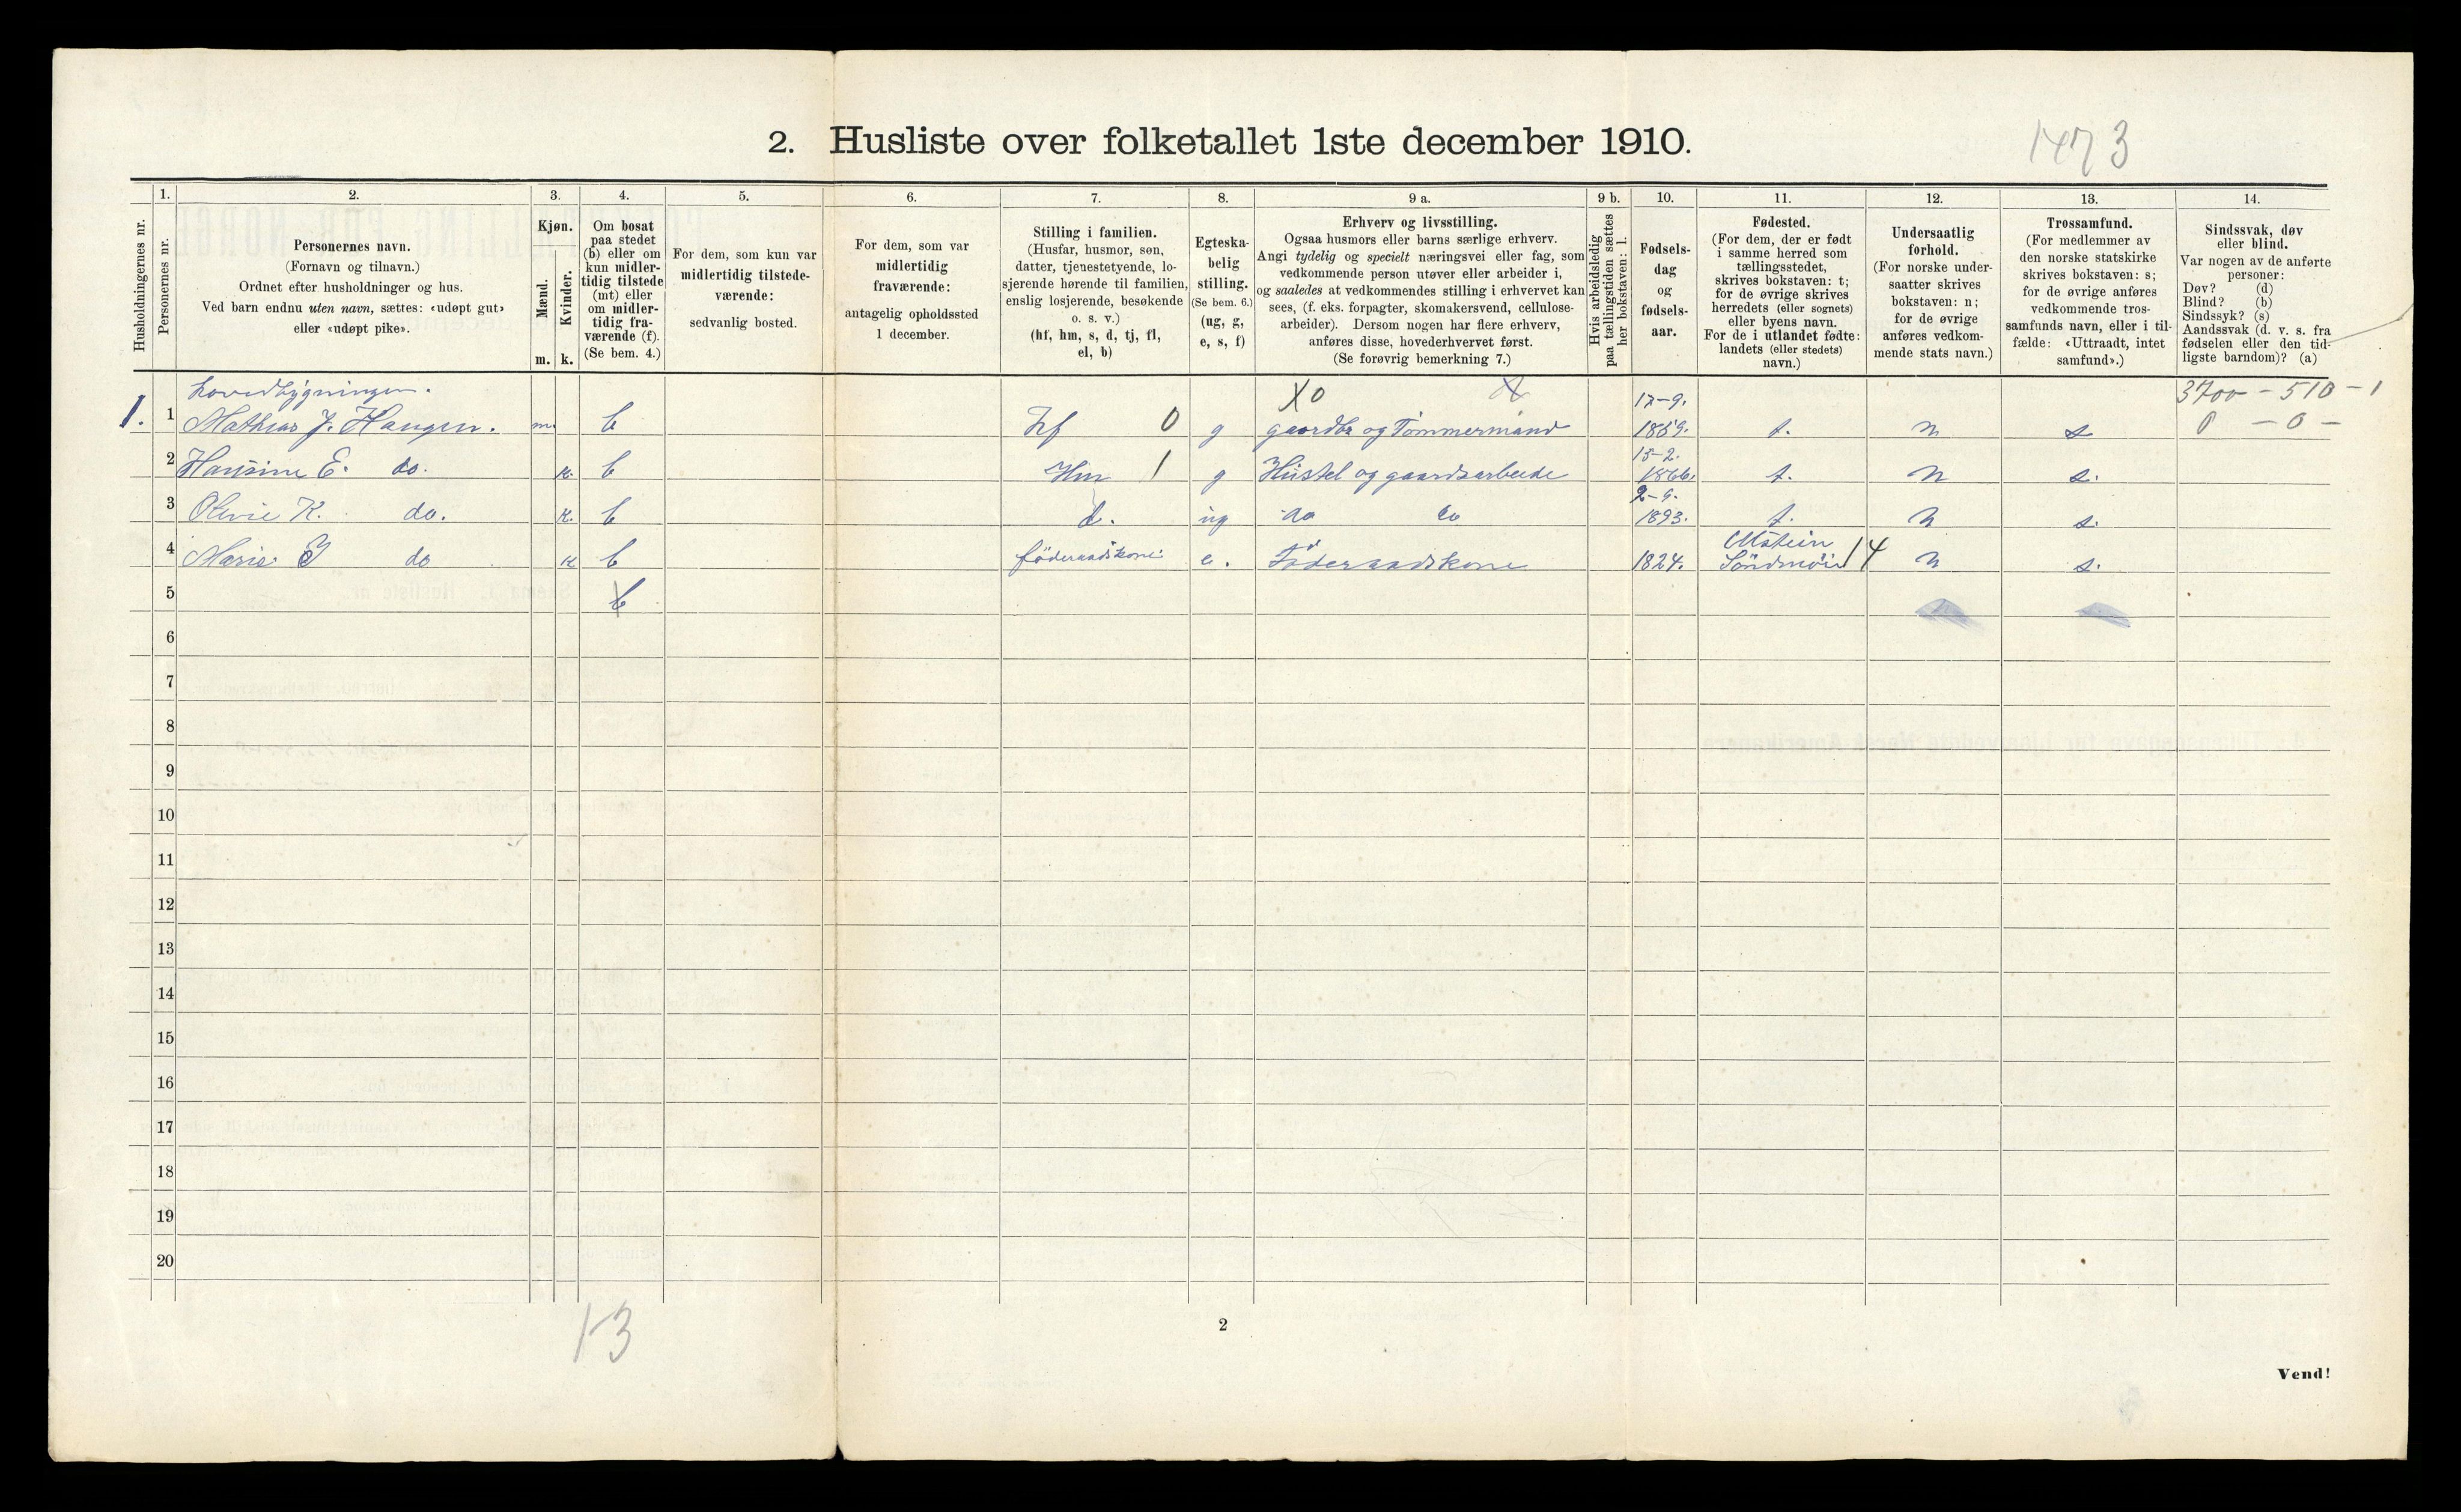 2. Husliste over folketallet 1ste december 1910.
1473
Husholdningernes nr.
1.
Personernes nr.
2.
Personernes navn.
(Fornavn og tilnavn.)
Ordnet efter husholdninger og hus.
Ved barn endnu uten navn, sættes: «udøpt gut»
eller «udøpt pike».
3.
Kjøn.
Mænd.
Kvinder.
m. k.
4.
Om bosat
paa stedet
(b) eller om
kun midler-
tidig tilstede
(mt) eller
om midler-
tidig fra-
værende (f).
(Se bem. 4.)
5.
For dem, som kun var
midlertidig tilstede-
værende:
sedvanlig bosted.
6.
For dem, som var
midlertidig
fraværende:
antagelig opholdssted
1 december.
7.
Stilling i familien.
(Husfar, husmor, søn,
datter, tjenestetyende, lo-
sjerende hørende til familien,
enslig losjerende, besøkende
o. s. v.)
(hf, hm, s, d, tj, fl,
el, b)
8.
Egteska-
belig
stilling.
(Se bem. 6.)
(ug, g,
e, s, f)
9 a.
Erhverv og livsstilling.
Ogsaa husmors eller barns særlige erhverv.
Angi tydelig og specielt næringsvei eller fag, som
vedkommende person utøver eller arbeider i,
og saaledes at vedkommendes stilling i erhvervet kan
sees, (f. eks. forpagter, skomakersvend, cellulose-
arbeider). Dersom nogen har flere erhverv,
anføres disse, hovederhvervet først.
(Se forøvrig bemerkning 7.)
9 b.
Hvis arbeidsledig
paa tællingstiden sættes
her bokstaven: l.
10.
Fødsels-
dag
og
fødsels-
aar.
11.
Fødested.
(For dem, der er født
i samme herred som
tællingsstedet,
skrives bokstaven: t;
for de øvrige skrives
herredets (eller sognets)
eller byens navn.
For de i utlandet fødte:
landets (eller stedets)
navn.)
12.
Undersaatlig
forhold.
(For norske under-
saatter skrives
bokstaven: n;
for de øvrige
anføres vedkom-
mende stats navn.)
13.
Trossamfund.
(For medlemmer av
den norske statskirke
skrives bokstaven: s;
for de øvrige anføres
vedkommende tros-
samfunds navn, eller i til-
fælde: «Uttraadt, intet
samfund».)
14.
Sindssvak, døv
eller blind.
Var nogen av de anførte
personer:
Døv? (d)
Blind? (b)
Sindssyk? (s)
Aandssvak (d. v. s. fra
fødselen eller den tid-
ligste barndom)? (a)
hovedbygningen. X0 X 17-9. 3700 - 510 - 1
1. 1 Mathias J. Haugen. m. b Hf 0 g gaardbr og Tømmermand 1859. t. n s 0 - 0 -
15-2.
2 Hansine E. do. k. b Hm 1 g Hüstel og gaardsarbeide 1866. t. n s.
2-9.
3 Olivie K. do. k. b d. ug do do 1893. t. n s.
Ulstein
4 Marie I do k b föderaadskone e. Föderaadskone 1824. Söndmör 14 n s.
5 b
6
7
8
9
10
11
12
13
14
15
16
17
18
19
20
1-3
2
Vend!